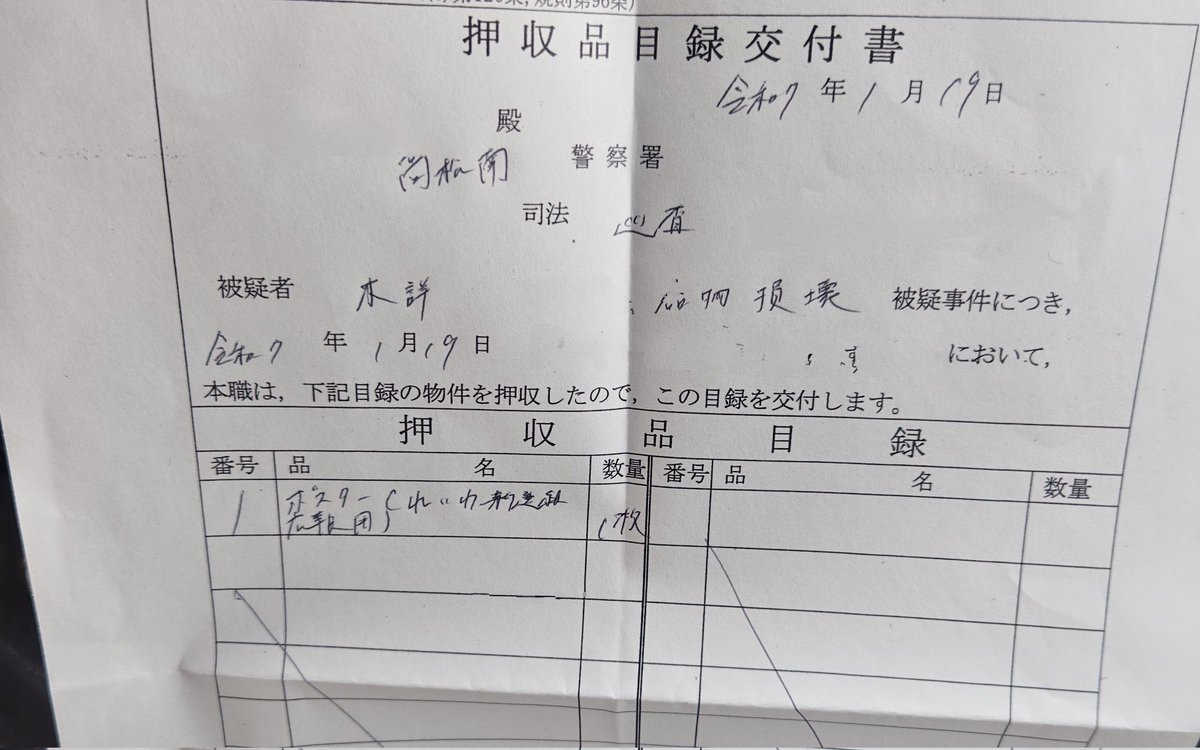 押収品目録交付書
令和7年1月19日
殿
高松南 警察署
司法 巡査
被疑者 不詳 器物損壊 被疑事件につき,
令和7年1月19日 において,
本職は,下記目録の物件を押収したので,この目録を交付します。
押収品目録
番号 品名 数量 番号 品名 数量
1 ポスター(れいわ新選組 1枚